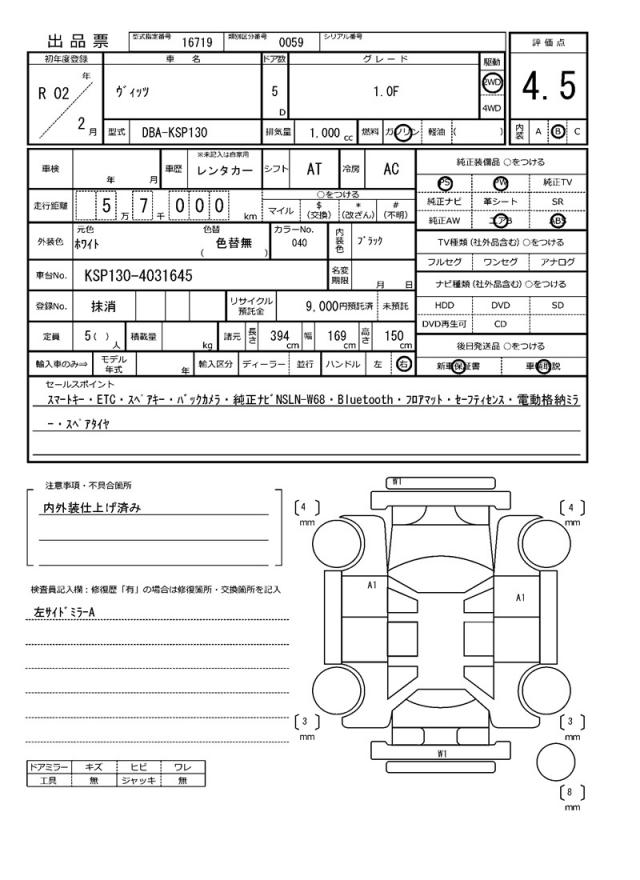 出品票 型式指定番号 16719 類別区分番号 0059 シリアル番号
初年度登録 車 名 ドア数 グレード 駆動 評価点
R 02 年 2 月 ヴィッツ 5 D 1.0F 2WD 4WD 4.5
型式 DBA-KSP130 排気量 1.000 cc 燃料 ガソリン 軽油 ( ) 内装 A B C
車検 年 月 車歴 ※未記入は自家用 レンタカー シフト AT 冷房 AC 純正装備品 ○をつける
PS PW 純正TV
走行距離 5 万 7 千 0 0 0 km ○をつける 純正ナビ 革シート SR
マイル $(交換) *(改ざん) #(不明) 純正AW エアB ABS
外装色 元色 ホワイト 色替 ( 色替無 ) カラーNo. 040 内装色 ブラック TV種類(社外品含む)○をつける
フルセグ ワンセグ アナログ
車台No. KSP130-4031645 名変期限 月 日 ナビ種類(社外品含む)○をつける
登録No. 抹消 リサイクル預託金 9,000円預託済 未預託 HDD DVD SD
DVD再生可 CD
定員 5( ) 人 積載量 kg 諸元 長さ 394 cm 幅 169 cm 高さ 150 cm 後日発送品 ○をつける
輸入車のみ⇒ モデル年式 年 輸入区分 ディーラー 並行 ハンドル 左 右 新車保証書 車輌取説
セールスポイント
スマートキー・ETC・スペアキー・バックカメラ・純正ナビNSLN-W68・Bluetooth・フロアマット・セーフティセンス・電動格納ミラ
ー・スペアタイヤ
注意事項・不具合箇所
内外装仕上げ済み
検査員記入欄：修復歴「有」の場合は修復箇所・交換箇所を記入
左サイドミラーA
ドアミラー キズ ヒビ ワレ
工具 無 ジャッキ 無
W1
[4] mm [4] mm
A1 A1
[3] mm [3] mm
W1
[8] mm